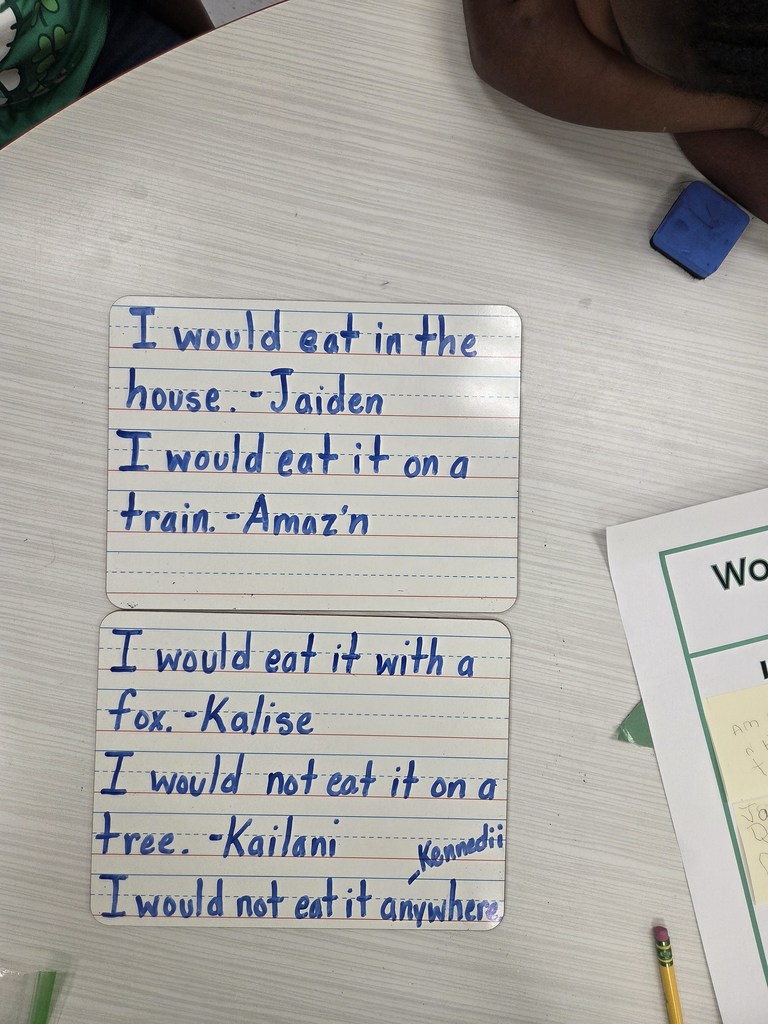 I would eat in the
house. -Jaiden
I would eat it on a
train. -Amaz'n
I would eat it with a
fox. -Kalise
I would not eat it on a
tree. -Kailani
-Kennedii
I would not eat it anywhere.
Wo
Am
Ja